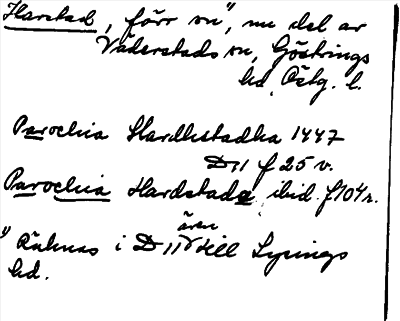 Harstad, förr sn¹⁾, nu del av
Väderstads sn, Göstrings
hd, Östg. l.
Parochia Hardhstadha 1447
D 11 f 25 v.
Parochia Hardstada ibid. f 104 r.
¹⁾ Räknas i D 11 även till Lysings
hd.